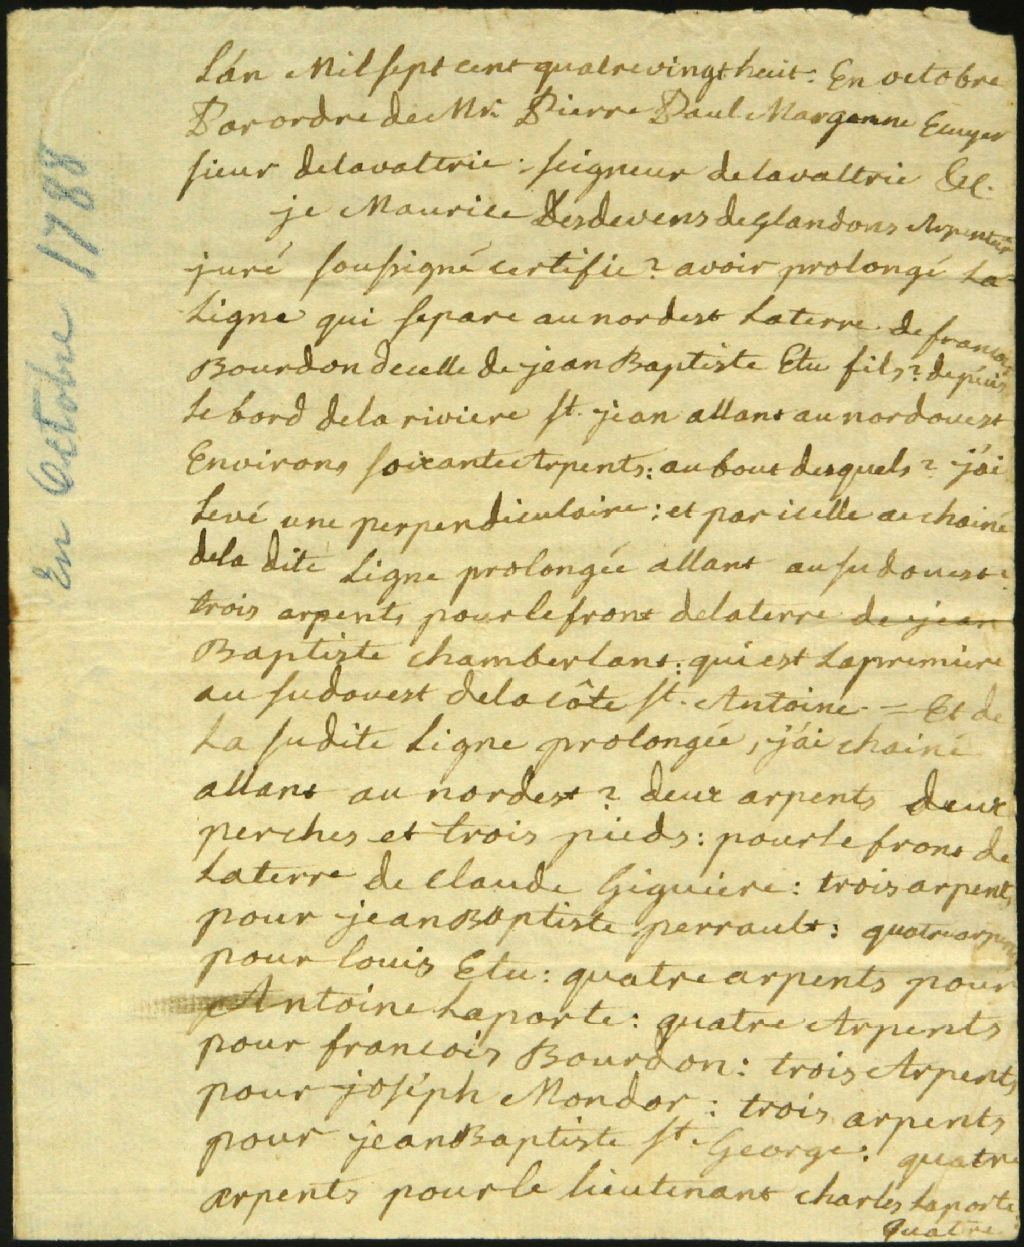 En Octobre 1788
L'án Mil sept cent quatre vingt huit: En octobre
Par ordre de Mr. Pierre Paul Marganne Ecuyer
sieur delavaterie: seigneur delavaltrie &c.
je Maurice Desdevens de Glandons Arpenteur
juré soussigné certifie? avoir prolongé La
Ligne qui separe au nordest La terre de francois
Bourdon decelle de jean Baptiste Etu fils? depuis
Le bord dela riviere st. jean allant au nordouest
Environs soixante Arpents: au bout desquels? j'ai
Levé une perpendiculaire: et par icelle ai chainé
dela dite Ligne prolongée allant au sudouest:
trois arpents pour le front delaterre de jean
Baptiste chamberlant: qui est La premiere
au sudouest dela côte st. Antoine. = Et de
La sudite Ligne prolongée, j'ai chainé
allant au nordest? deux arpents deux
perches et trois pieds: pour le front de
La terre de Claude Giguiere: trois arpents
pour jean Baptiste perrault: quatre arpents
pour Louis Etu: quatre arpents pour
Antoine Laporte: quatre Arpents
pour francois Bourdon: trois Arpents
pour joséph Mondor: trois arpents
pour jean Baptiste st. George: quatre
arpents pour le lieutenant charles Laporte
quatre